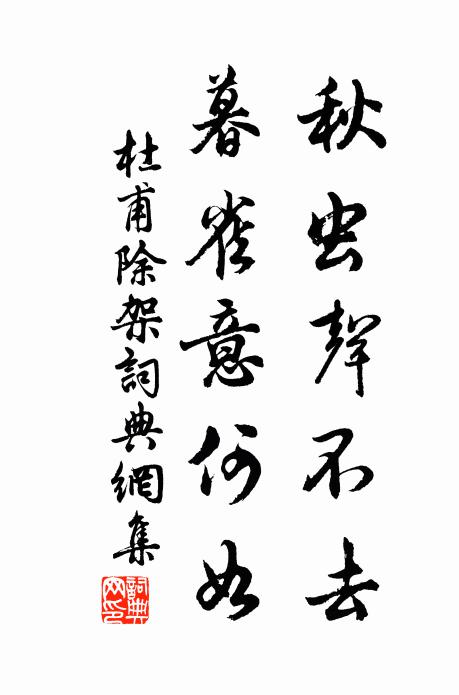 秋虫聲不去
暮雀意何如
杜甫除架詞典網集
詞典网印